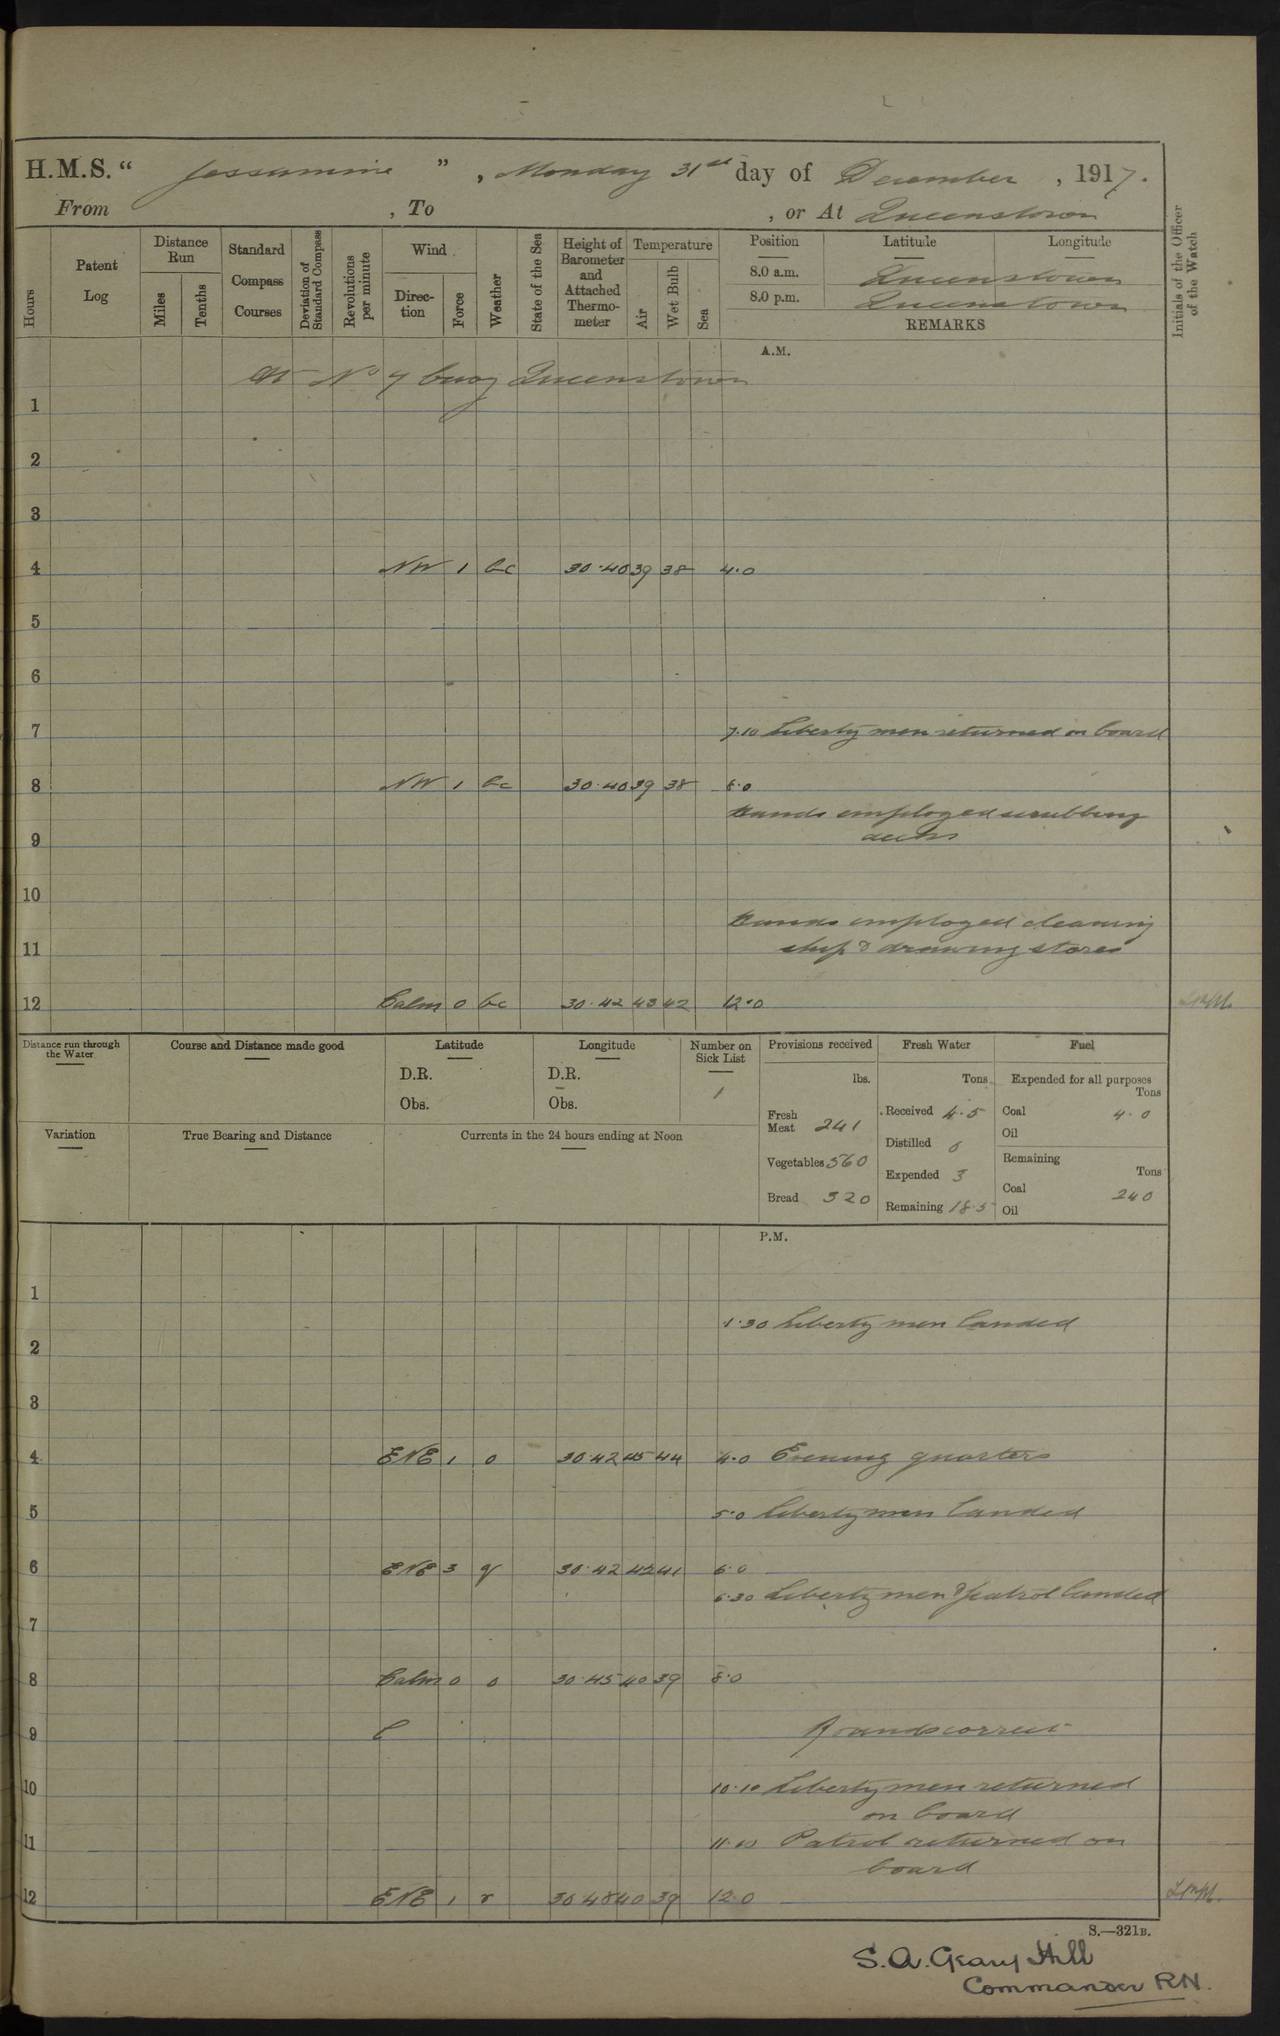 H.M.S. “ Jessamine ” , Monday 31st day of December , 1917.
From , To , or At Queenstown
Hours
Patent Log
Distance Run
Miles
Tenths
Standard Compass Courses
Deviation of Standard Compass
Revolutions per minute
Wind
Direction
Force
Weather
State of the Sea
Height of Barometer and Attached Thermometer
Temperature
Air
Wet Bulb
Sea
Position Latitude Longitude
8.0 a.m. Queenstown
8.0 p.m. Queenstown
REMARKS
Initials of the Officer of the Watch
A.M.
At No 7 buoy Queenstown
1
2
3
4 NW 1 bc 30.40 39 38 4.0
5
6
7 7.10 Liberty men returned on board
8 NW 1 bc 30.40 39 38 8.0
Hands employed scrubbing
9 decks
10
Hands employed cleaning
11 ship & drawing stores
12 Calm 0 bc 30.42 43 42 12.0
Distance run through the Water
Course and Distance made good
Latitude
D.R.
Obs.
Longitude
D.R.
Obs.
Number on Sick List
1
Provisions received
lbs.
Fresh Meat 241
Vegetables 560
Bread 320
Fresh Water
Tons
Received 4.5
Distilled 0
Expended 3
Remaining 18.5
Fuel
Expended for all purposes
Tons
Coal 4.0
Oil
Remaining
Tons
Coal 240
Oil
Variation
True Bearing and Distance
Currents in the 24 hours ending at Noon
P.M.
1
1.30 Liberty men landed
2
3
4 ENE 1 o 30.42 45 44 4.0 Evening quarters
5 5.0 Liberty men landed
6 ENE 3 q 30.42 42 41 6.0
6.30 Liberty men & patrol landed
7
8 Calm 0 o 30.45 40 39 8.0
9 C Rounds correct
10 10.10 Liberty men returned
on board
11 11.10 Patrol returned on
board
12 ENE 1 r 30.48 40 39 12.0
S.—321B.
S.A. Geary Hill
Commander RN.